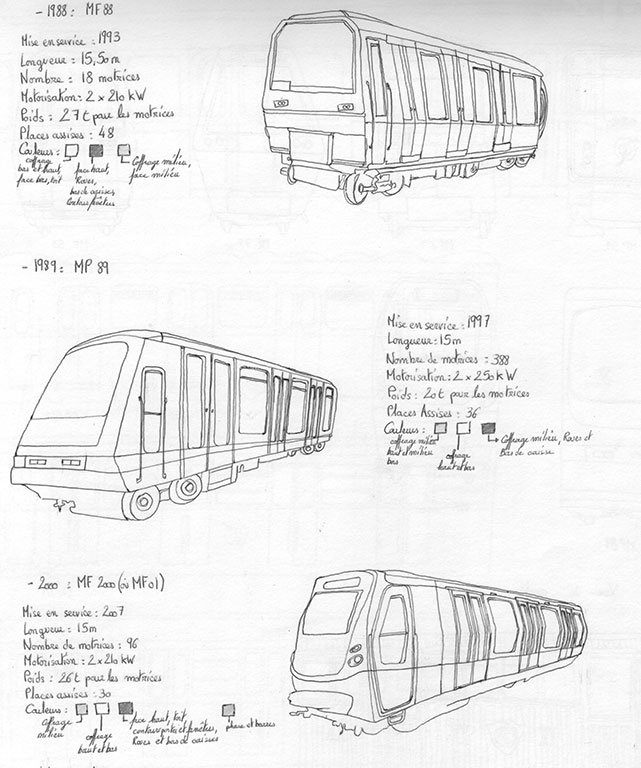 - 1988 : MF 88
Mise en service : 1993
Longueur : 15,50 m
Nombre : 18 motrices
Motorisation : 2 x 210 kW
Poids : 27 t pour les motrices
Places assises : 48
Couleurs :
coffrage
bas et haut,
face bas, toit
face haut,
Roues,
bas de caisses
Contours fenêtres
Coffrage milieu,
face milieu
- 1989 : MP 89
Mise en service : 1997
Longueur : 15 m
Nombre de motrices : 388
Motorisation : 2 x 250 kW
Poids : 20 t pour les motrices
Places Assises : 36
Couleurs :
coffrage milieu
haut et milieu
bas
coffrage
haut et bas
Coffrage milieu, Roues et
Bas de caisse
- 2000 : MF 2000 (où MF01)
Mise en service : 2007
Longueur : 15 m
Nombre de motrices : 96
Motorisation : 2 x 210 kW
Poids : 26 t pour les motrices
Places assises : 30
Couleurs :
coffrage
milieu
coffrage
haut et bas
face haut, toit,
contours portes et fenêtres,
Roues et bas de caisses
phare et barres